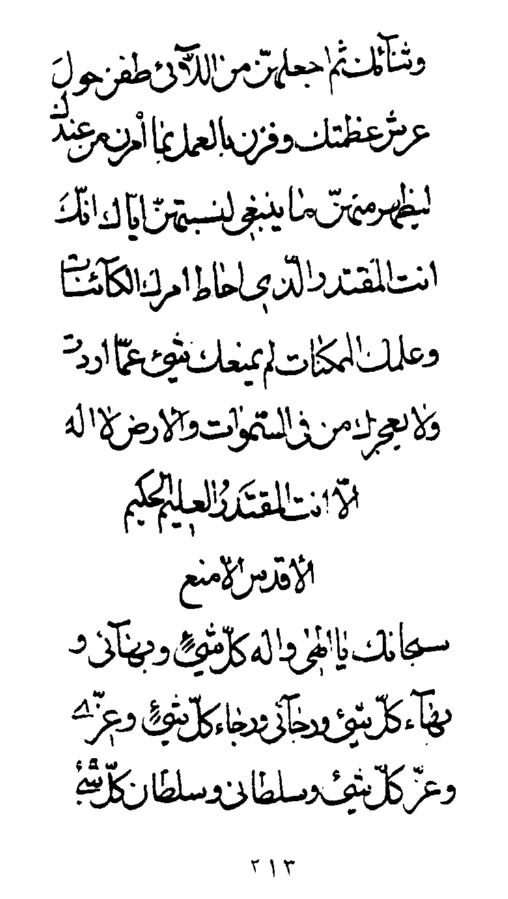 وثنآئك ثمّ اجعلهنّ من اللّآئى طفن حول
عرش عظمتك وفزن بالعمل بما أمرن من عندك
ليظهر منهنّ ما ينبغى لنسبتهنّ ايّاك انّك
انت المقتدر الّذى احاط امرك الكآئنات
وعلمك الممكنات لم يمنعك شيئ عمّا اردت
ولا يعجزك من فى السّموات والارض لا اله
الّا انت المقتدر العليم الحكيم
الاقدس الامنع
سبحانك يا الهى واله كلّ شيئ وبهآئى و
بهآء كلّ شيئ ورجآئى ورجاء كلّ شيئ وعزّى
وعزّ كلّ شيئ وسلطانى وسلطان كلّ شيئ
٢١٣